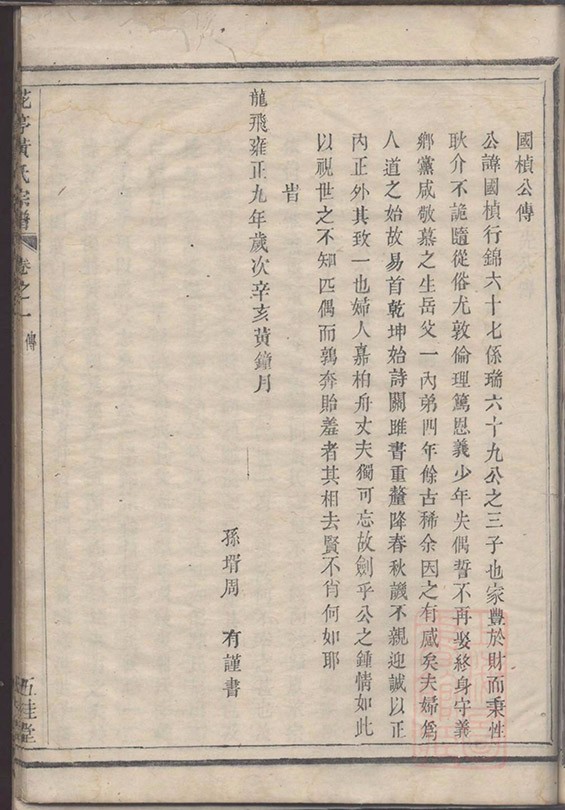 國楨公傳
公諱國楨行錦六十七係瑞六十九公之三子也家豐於財而秉性
耿介不詭隨從俗尤敦倫理篤恩義少年失偶誓不再娶終身守義
鄉黨咸敬慕之生岳父一內弟四年餘古稀余因之有感矣夫婦為
人道之始故易首乾坤始詩關雎書重釐降春秋譏不親迎誠以正
內正外其致一也婦人嘉柏舟丈夫獨可忘故劍乎公之鍾情如此
以視世之不知匹偶而鶉奔貽羞者其相去賢不肖何如耶
旹
龍飛雍正九年歲次辛亥黃鐘月
孫壻周 有謹書
黃氏宗譜
卷之一
傳
五桂堂